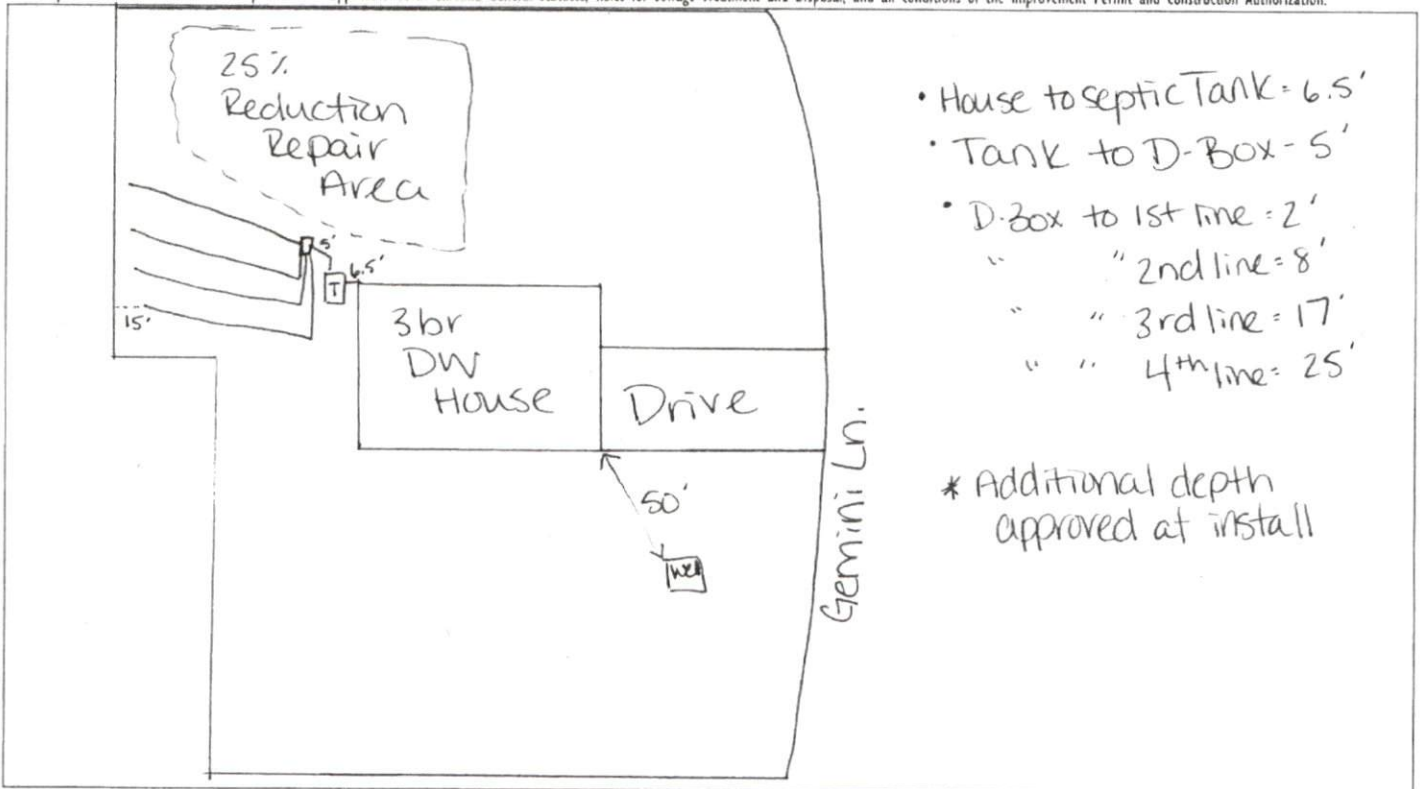 and all conditions of the Improvement Permit and Construction Authorization.
25%
Reduction
Repair
Area
5'
6.5'
T
15'
3br
DW
House
Drive
50'
Well
Gemini Ln.
• House to septic Tank = 6.5'
• Tank to D-Box - 5'
• D-Box to 1st line = 2'
" " 2nd line = 8'
" " 3rd line = 17'
" " 4th line = 25'
* Additional depth
approved at install